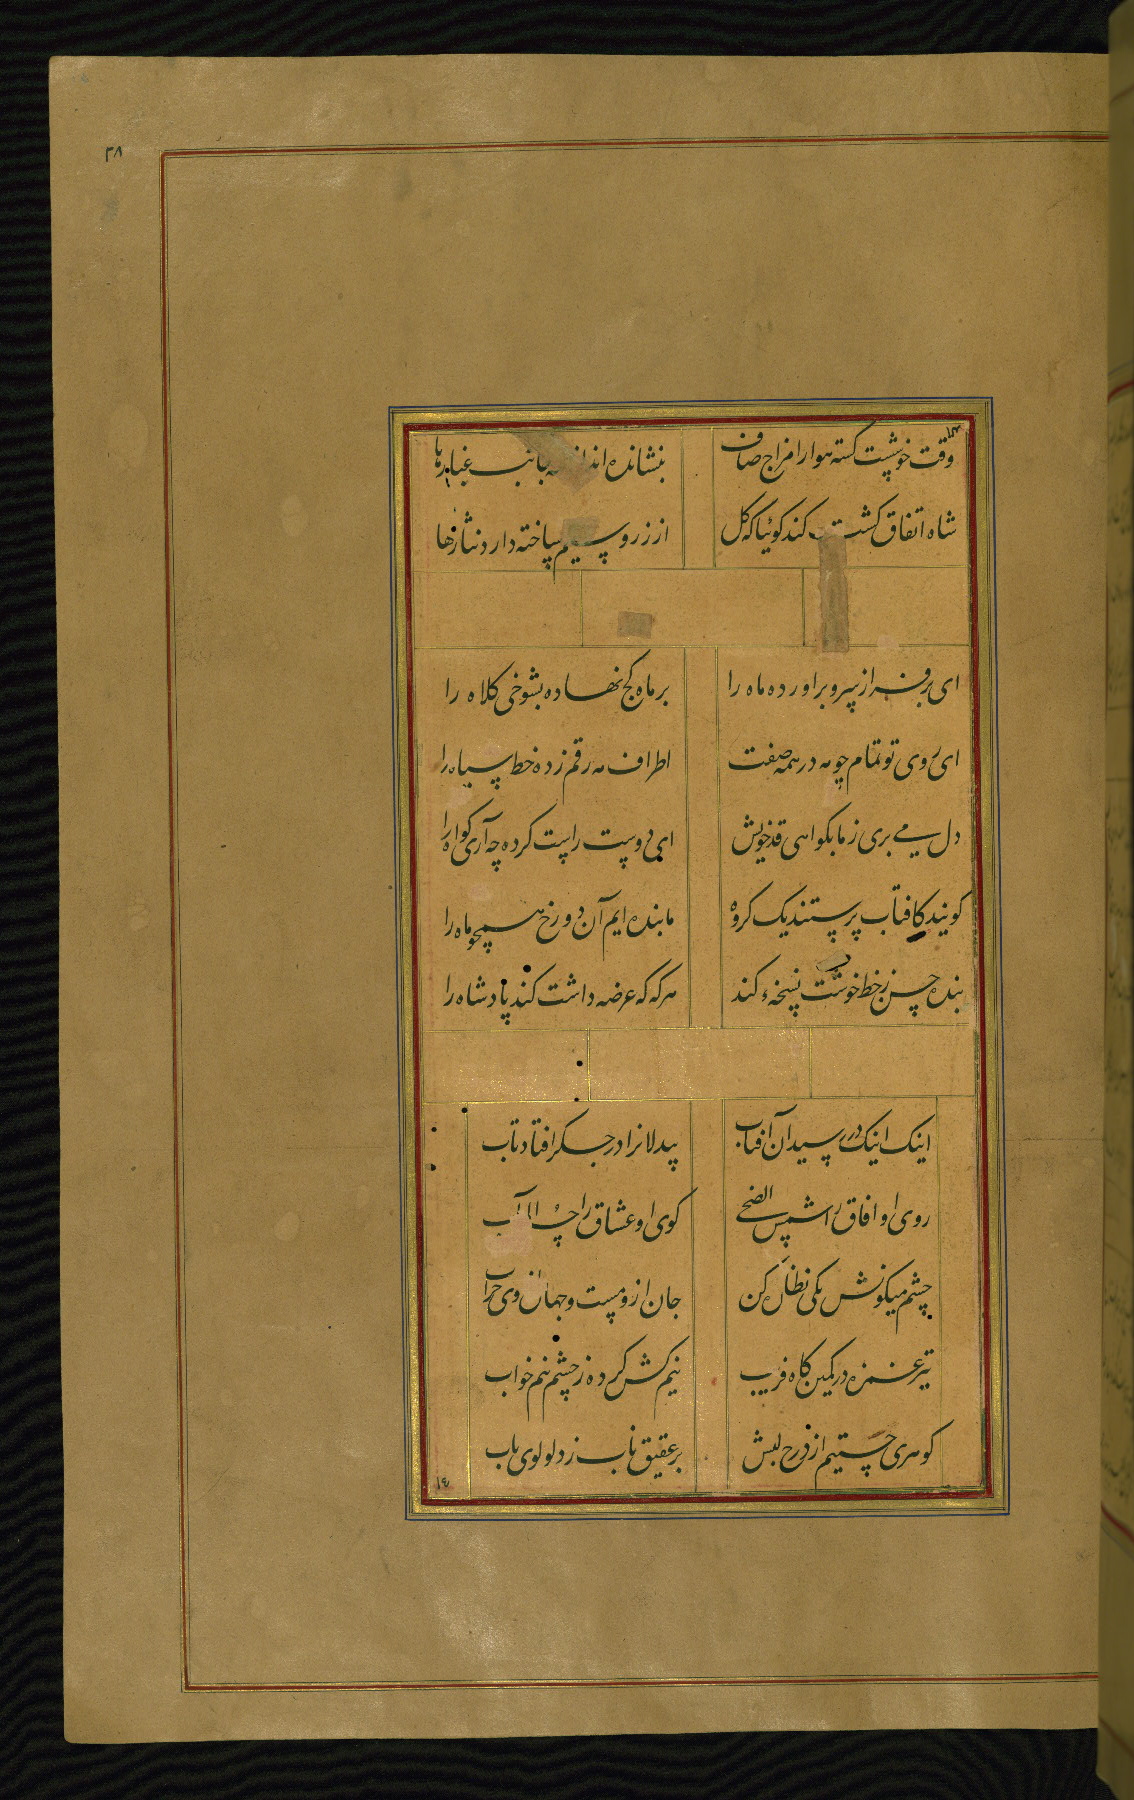 ۳۸
وقت خوشست کشته هوا را مزاج صاف
بنشانده اند غبارها
شاه اتفاق کشت کند کوئیا که کل
از زر و سیم ساخته دارد نثارها
ای بر فراز سرو بر اورده ماه را
بر ماه کج نهاده بشوخی کلاه را
ای روی تو تمام چو مه در همه صفت
اطراف مه رقم زده خط سیاه را
دل می بری ز ما بکواهی قد خویش
ای دوست راست کرده چه آری کواه را
کویند کافتاب پرستند یک کروه
ما بنده ایم آن دو رخ همچو ماه را
بنده حسن ز خط خوشت نسخهء کند
هر که که عرضه داشت کند پادشاه را
اینک اینک در رسید آن آفتاب
بیدلانرا در جکر افتاد تاب
روی او افاق را شمس الضحی
کوی او عشاق را آب
چشم میکونش یکی نظاره کن
جان ازو مست و جهان زوی خراب
تیر غمزه در کمین کاه فریب
نیم کش کرده ز چشم نیم خواب
کوهری جستیم از درج لبش
بر عقیق ناب زد لولوی ناب